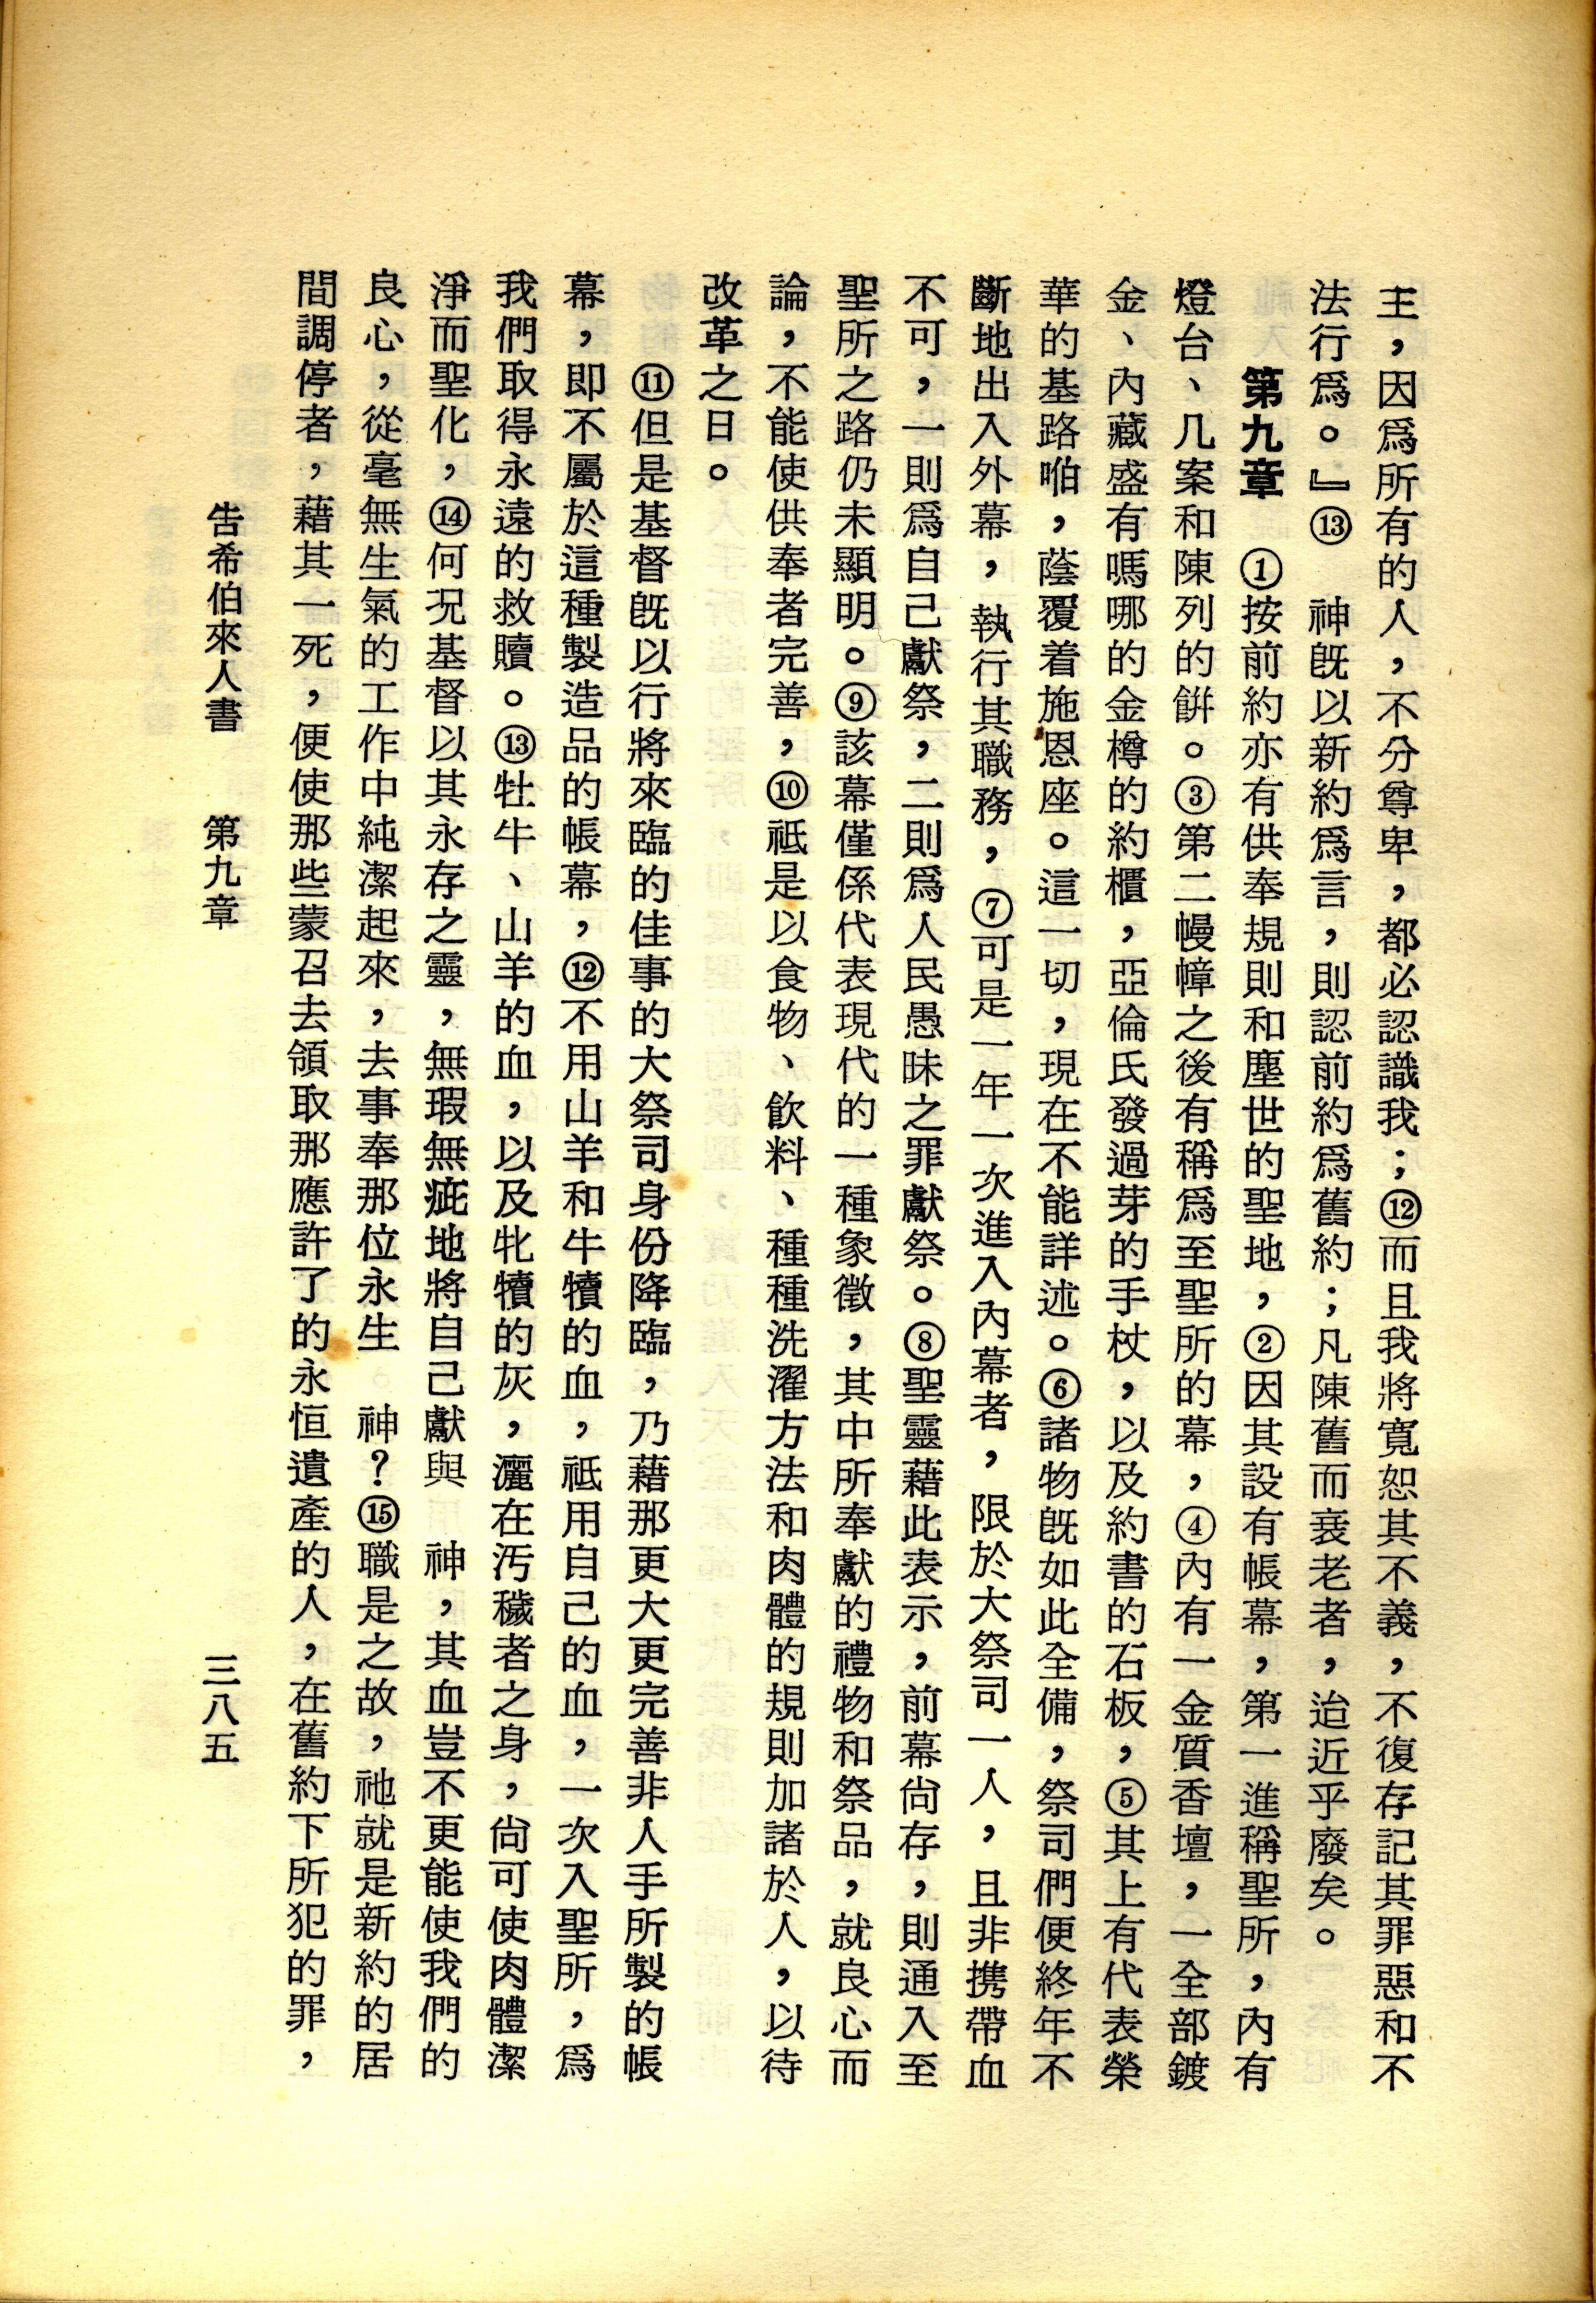 主，因爲所有的人，不分尊卑，都必認識我；⑫而且我將寬恕其不義，不復存記其罪惡和不
法行爲。』⑬　神旣以新約爲言，則認前約爲舊約；凡陳舊而衰老者，迨近乎廢矣。
第九章　①按前約亦有供奉規則和塵世的聖地，②因其設有帳幕，第一進稱聖所，內有
燈台、几案和陳列的餠。③第二幔幛之後有稱爲至聖所的幕，④內有一金質香壇，一全部鍍
金、內藏盛有嗎哪的金樽的約櫃，亞倫氏發過芽的手杖，以及約書的石板，⑤其上有代表榮
華的基路㗑，蔭覆着施恩座。這一切，現在不能詳述。⑥諸物旣如此全備，祭司們便終年不
斷地出入外幕，執行其職務，⑦可是一年一次進入內幕者，限於大祭司一人，且非携帶血
不可，一則爲自己獻祭，二則爲人民愚昧之罪獻祭。⑧聖靈藉此表示，前幕尙存，則通入至
聖所之路仍未顯明。⑨該幕僅係代表現代的一種象徵，其中所奉獻的禮物和祭品，就良心而
論，不能使供奉者完善，⑩祗是以食物、飮料、種種洗濯方法和肉體的規則加諸於人，以待
改革之日。
⑪但是基督旣以行將來臨的佳事的大祭司身份降臨，乃藉那更大更完善非人手所製的帳
幕，即不屬於這種製造品的帳幕，⑫不用山羊和牛犢的血，祗用自己的血，一次入聖所，爲
我們取得永遠的救贖。⑬牡牛、山羊的血，以及牝犢的灰，灑在汚穢者之身，尙可使肉體潔
淨而聖化，⑭何況基督以其永存之靈，無瑕無疵地將自己獻與　神，其血豈不更能使我們的
良心，從毫無生氣的工作中純潔起來，去事奉那位永生　神？⑮職是之故，祂就是新約的居
間調停者，藉其一死，便使那些蒙召去領取那應許了的永恒遺產的人，在舊約下所犯的罪，
吿希伯來人書　第九章　三八五